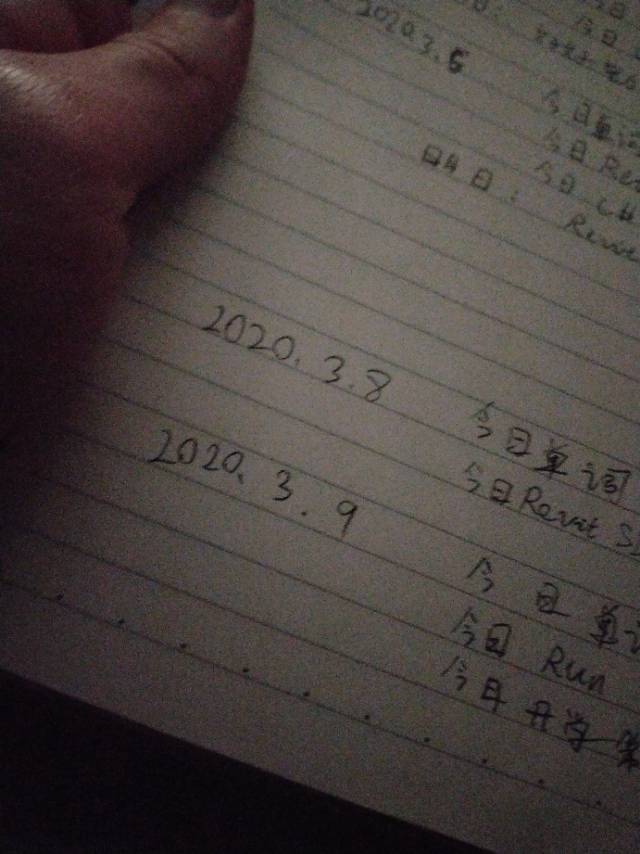 今日
2020.3.6
今日单词
今日
今日
明日: Revit
2020.3.8 今日单词
今日Revit
2020.3.9
今日单词
今日 Run
今日开学